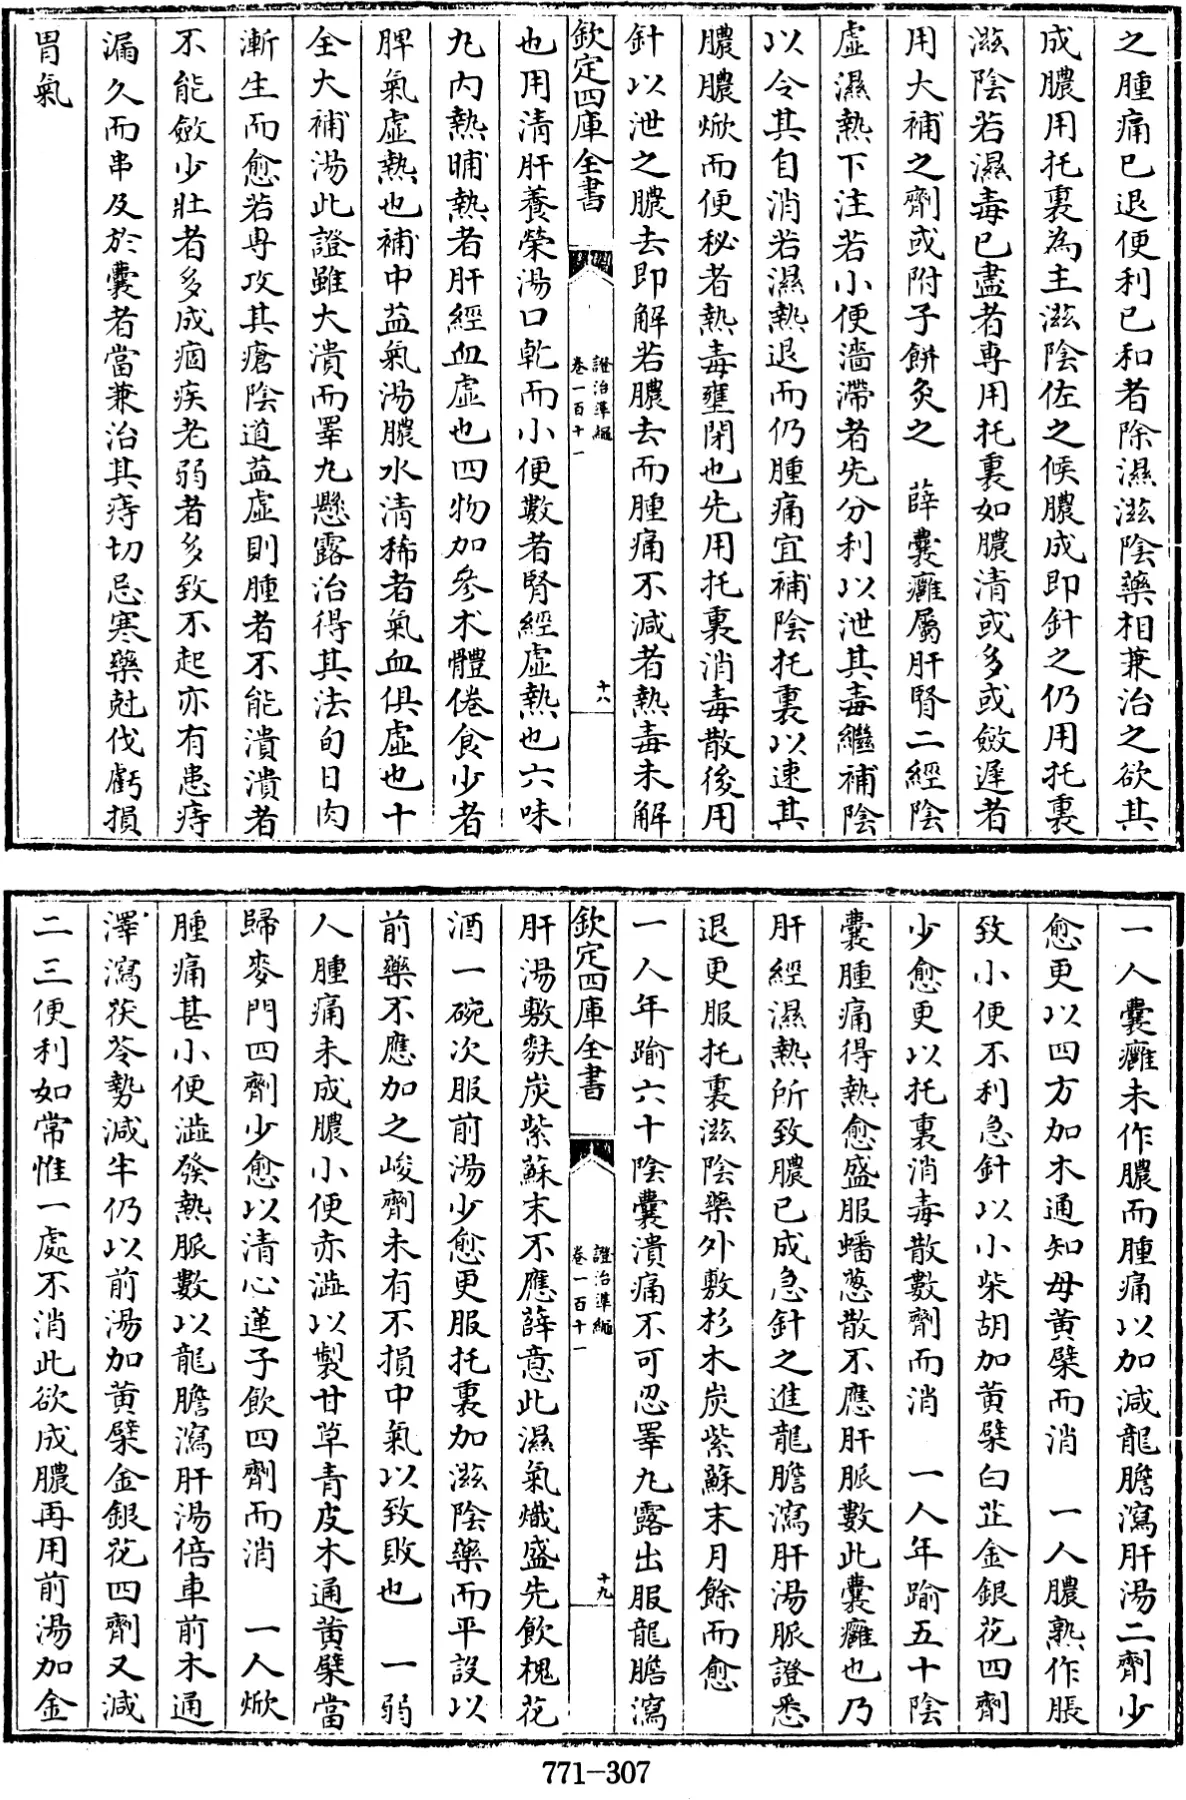 之腫痛已退便利已和者除濕滋陰藥相兼治之欲其
成膿用托裏為主滋陰佐之候膿成即針之仍用托裏
滋陰若濕毒已盡者専用托裏如膿清或多或斂遲者
用大補之劑或附子餅灸之　薛囊癰屬肝腎二經陰
虛濕熱下注若小便濇滯者先分利以泄其毒繼補陰
以令其自消若濕熱退而仍腫痛宜補陰托裏以速其
膿膿焮而便秘者熱毒壅閉也先用托裏消毒散後用
針以泄之膿去即解若膿去而腫痛不減者熱毒未解
欽定四庫全書
證治準繩
卷一百十一
十八
也用清肝養榮湯口乾而小便數者腎經虛熱也六味
九内熱晡熱者肝經血虛也四物加參术體倦食少者
脾氣虛熱也補中益氣湯膿水清稀者氣血俱虛也十
全大補湯此證雖大潰而睪丸懸露治得其法旬日肉
漸生而愈若専攻其瘡陰道益虛則腫者不能潰潰者
不能斂少壯者多成痼疾老弱者多致不起亦有患痔
漏久而串及於囊者當兼治其痔切忌寒藥尅伐虧損
胃氣
一人囊癰未作膿而腫痛以加減龍膽瀉肝湯二劑少
愈更以四方加木通知母黄蘗而消　一人膿熟作脹
致小便不利急針以小柴胡加黄蘗白芷金銀花四劑
少愈更以托裏消毒散數劑而消　一人年踰五十陰
囊腫痛得熱愈盛服蟠葱散不應肝脈數此囊癰也乃
肝經濕熱所致膿已成急針之進龍膽瀉肝湯脈證悉
退更服托裏滋陰藥外敷杉木炭紫蘇末月餘而愈
一人年踰六十陰囊潰痛不可忍睪九露出服龍膽瀉
欽定四庫全書
證治準繩
卷一百十一
十九
肝湯敷麩炭紫蘇末不應薛意此濕氣熾盛先飲槐花
酒一碗次服前湯少愈更服托裏加滋陰藥而平設以
前藥不應加之峻劑未有不損中氣以致敗也　一弱
人腫痛未成膿小便赤澁以製甘草青皮木通黄蘗當
歸麥門四劑少愈以清心蓮子飲四劑而消　一人焮
腫痛甚小便澁發熱脈數以龍膽瀉肝湯倍車前木通
澤瀉茯苓勢減半仍以前湯加黄蘗金銀花四劑又減
二三便利如常惟一處不消此欲成膿再用前湯加金
771-307